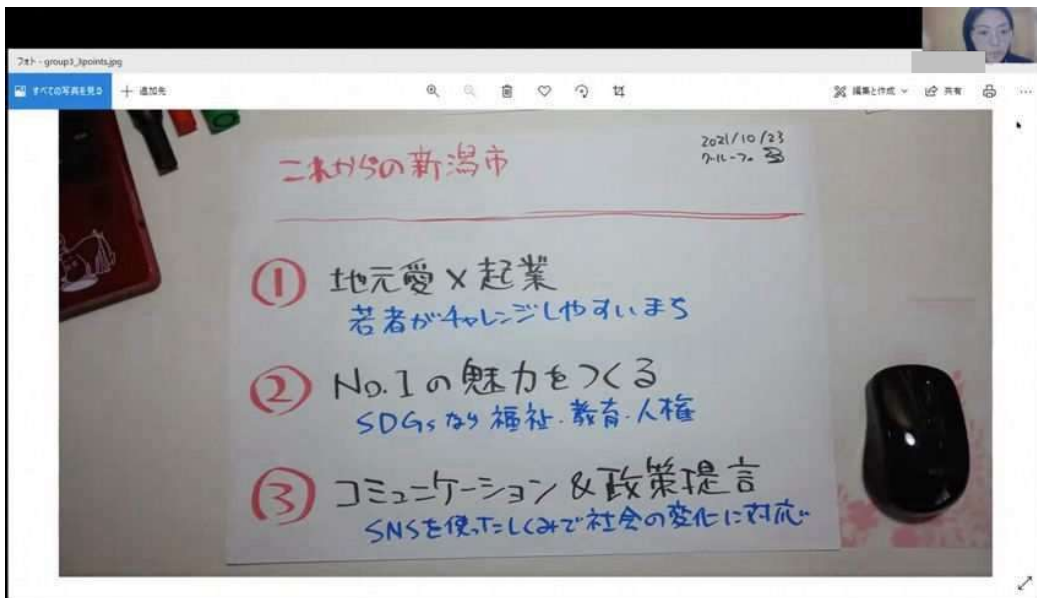 フォト - group3_3points.jpg
すべての写真を見る
追加先
編集と作成
共有
2021/10/23
グループ 3
これからの新潟市
① 地元愛×起業
若者がチャレンジしやすいまち
② No.1の魅力をつくる
SDGsなら福祉・教育・人権
③ コミュニケーション&政策提言
SNSを使ったしくみで社会の変化に対応